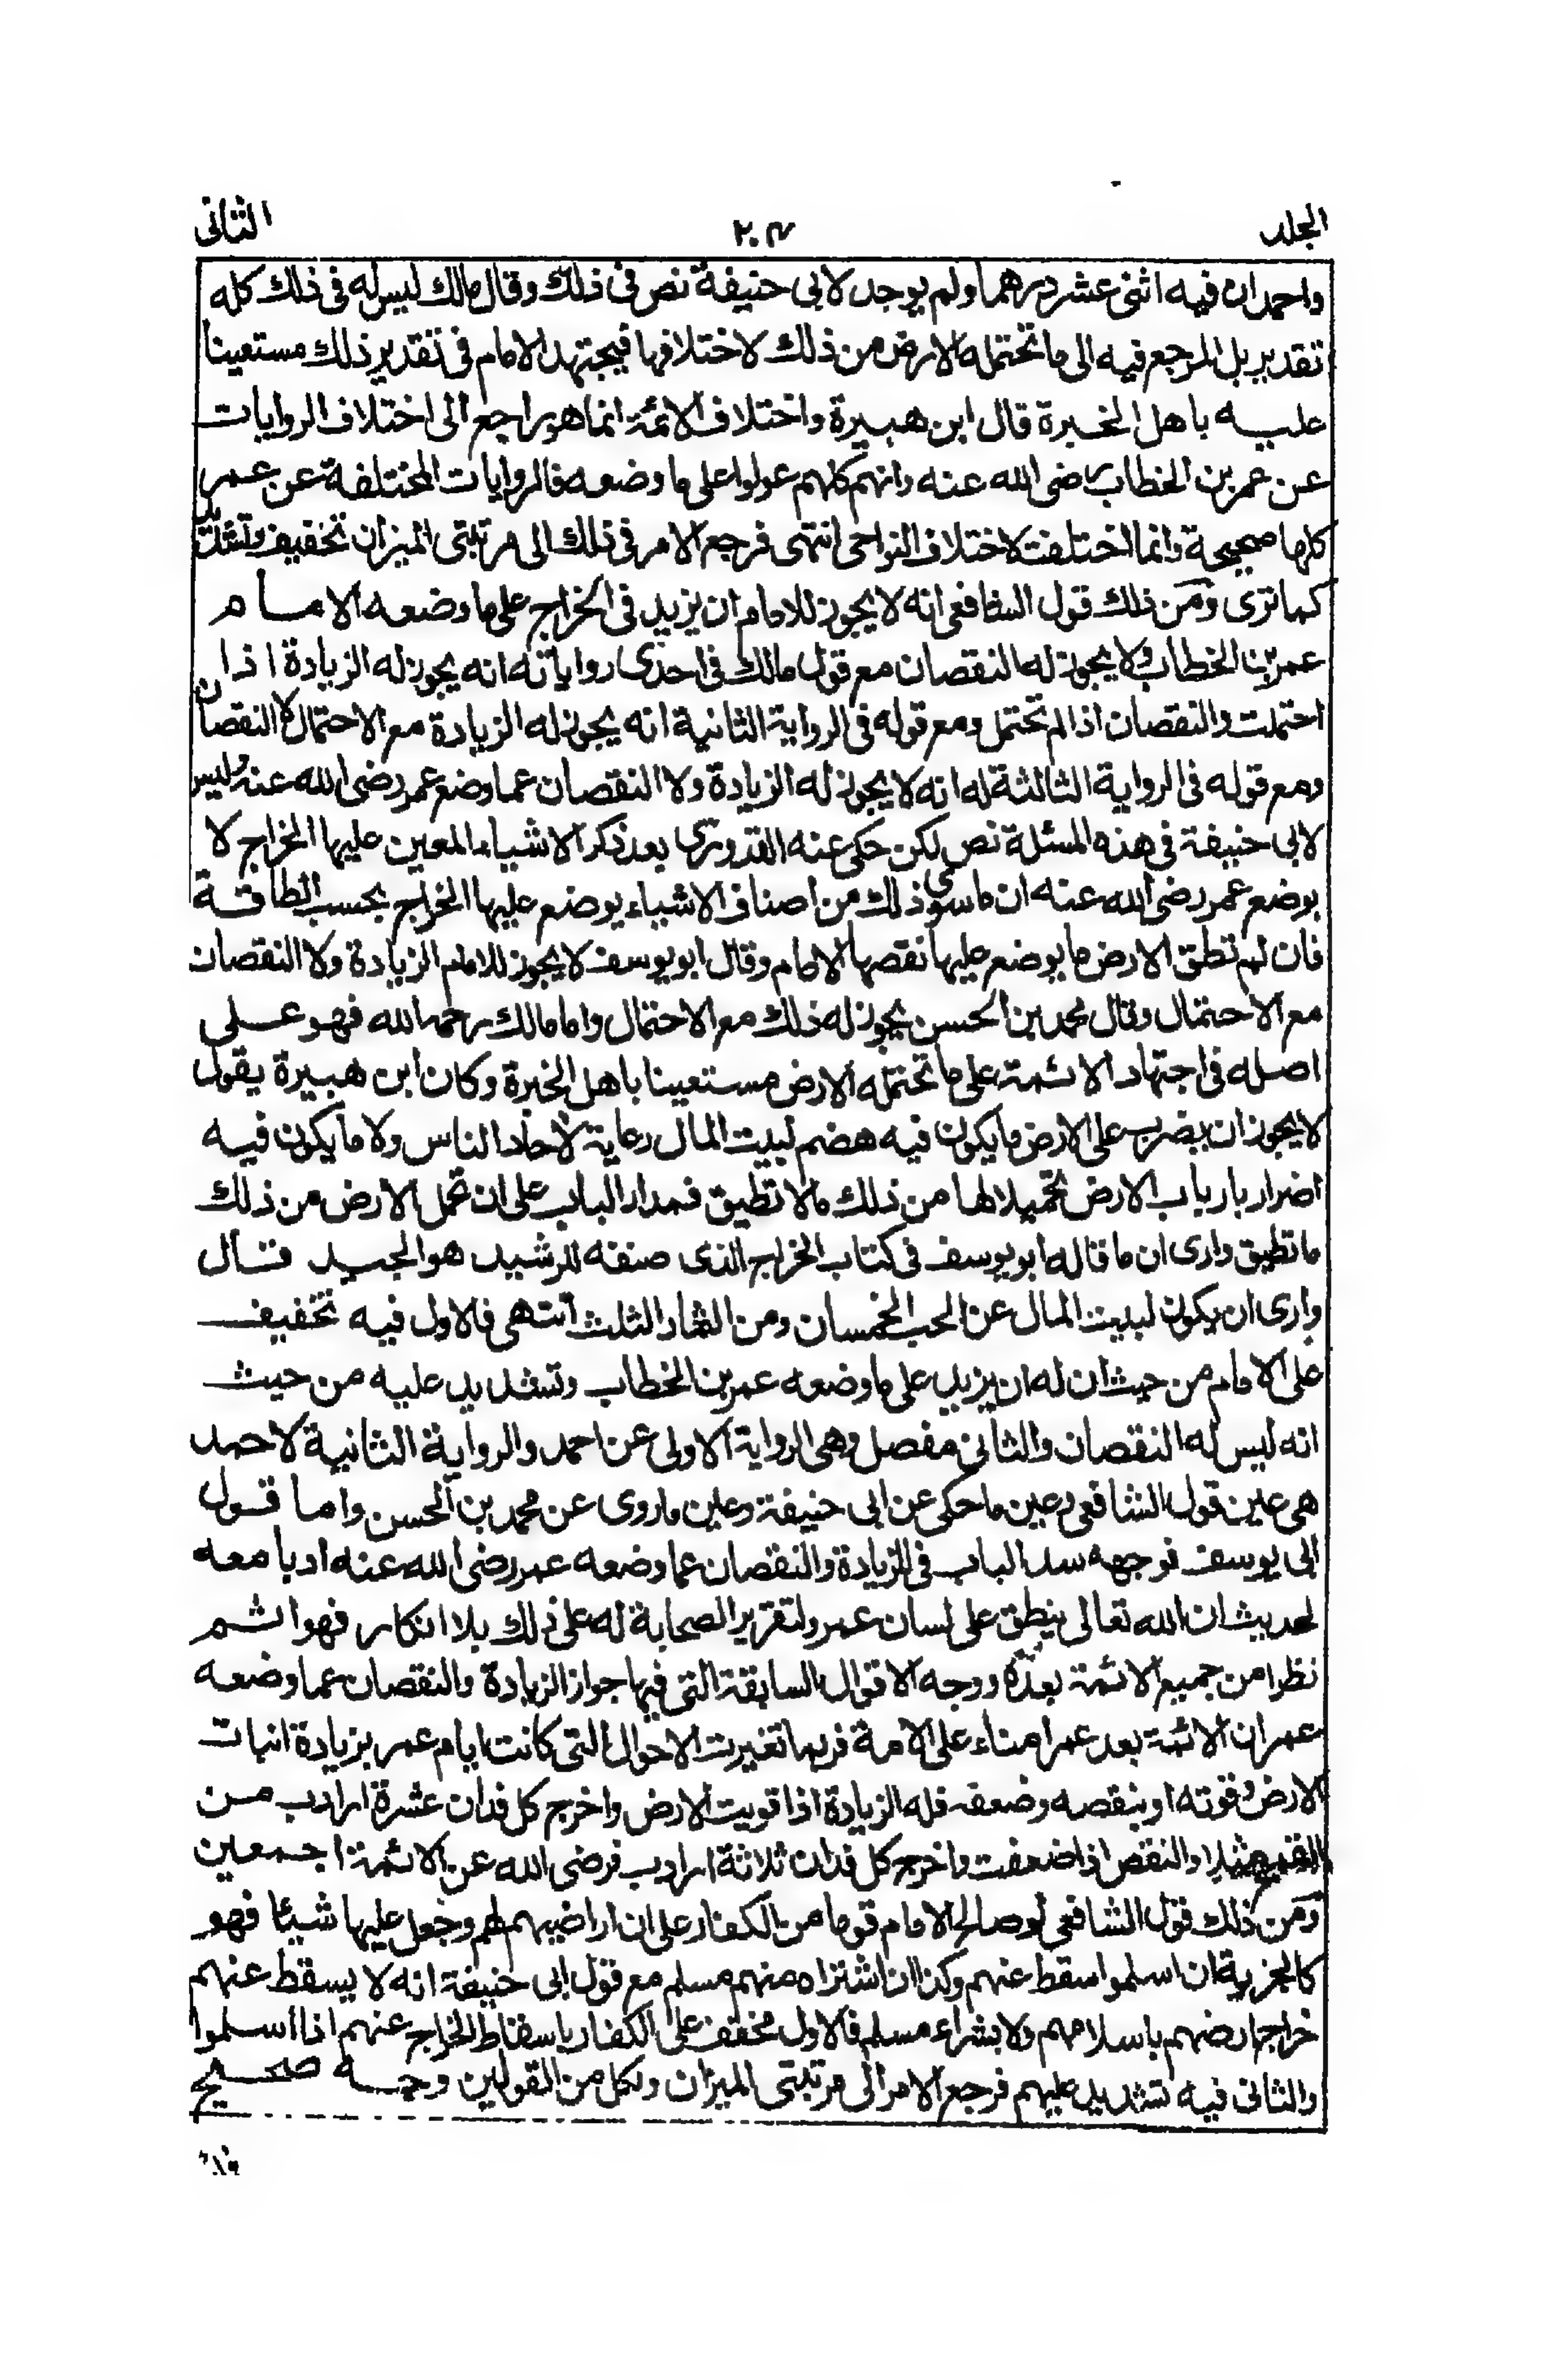 الجلد ٢٠٣ الثانى
واحمد ان فيه اثنى عشر درهما ولم يوجد لابى حنيفة نص فى ذلك وقال مالك ليس له فى ذلك كله
تقدير بل المرجع فيه الى ما تحتمله الارض من ذلك لاختلافها فيجتهد الامام فى تقدير ذلك مستعينا
عليه باهل الخبرة قال ابن هبيرة واختلاف الائمة انما هو راجع الى اختلاف الروايات
عن عمر بن الخطاب رضى الله عنه وانهم كلهم عولوا على ما وضعه فالروايات المختلفة عن عمر
كلها صحيحة وانما اختلفت لاختلاف النواحى انتهى فرجع الامر فى ذلك الى مرتبتى الميزان تخفيف وتشديد
كما ترى ومن ذلك قول الشافعى انه لا يجوز للامام ان يزيد فى الخراج على ما وضعه الامام
عمر بن الخطاب ولا يجوز له النقصان مع قول مالك فى احدى رواياته انه يجوز له الزيادة اذا
احتملت والنقصان اذا لم تحتمل ومع قوله فى الرواية الثانية انه يجوز له الزيادة مع الاحتمال لا النقصان
ومع قوله فى الرواية الثالثة له انه لا يجوز له الزيادة ولا النقصان عما وضع عمر رضى الله عنه وليس
لابى حنيفة فى هذه المسئلة نص لكن حكى عنه القدورى بعد ذكر الاشياء المعين عليها الخراج لا
بوضع عمر رضى الله عنه ان ما سوى ذلك من اصناف الاشياء يوضع عليها الخراج بحسب الطاقة
فان لم تطق الارض ما يوضع عليها نقصها الامام وقال ابو يوسف لا يجوز للامام الزيادة ولا النقصان
مع الاحتمال وقال محمد بن الحسن يجوز له ذلك مع الاحتمال واما مالك رحمه الله فهو على
اصله فى اجتهاد الائمة على ما تحتمله الارض مستعينا باهل الخبرة وكان ابن هبيرة يقول
لا يجوز ان يضرب على الارض ما يكون فيه هضم لبيت المال رعاية لآحاد الناس ولا ما يكون فيه
اضرار بارباب الارض تحميلا لها من ذلك ما لا تطيق فمدار الباب على ان تحمل الارض من ذلك
ما تطيق وارى ان ما قاله ابو يوسف فى كتاب الخراج الذى صنفه للرشيد هو الجيد قال
وارى ان يكون لبيت المال عن الحب الخمسان ومن الثمار الثلث انتهى فالاول فيه تخفيف
على الامام من حيث ان له ان يزيد على ما وضعه عمر بن الخطاب وتشديد عليه من حيث
انه ليس له النقصان والثانى مفصل وهى الرواية الاولى عن احمد والرواية الثانية لاحمد
هى عين قول الشافعى وعين ما حكى عن ابى حنيفة وعين ما روى عن محمد بن الحسن واما قول
ابى يوسف فوجهه سد الباب فى الزيادة والنقصان عما وضعه عمر رضى الله عنه ادبا معه
لحديث ان الله تعالى ينطق على لسان عمر ولتقرير الصحابة له على ذلك بلا انكار فهو اتم
نظرا من جميع الائمة بعده ووجه الاقوال السابقة التى فيها جواز الزيادة والنقصان عما وضعه
عمر ان الائمة بعد عمر امناء على الامة فربما تغيرت الاحوال التى كانت ايام عمر بزيادة انبات
الارض وقوته او بنقصه وضعفه فله الزيادة اذا قويت الارض واخرج كل فدان عشرة ارادب من
القمح مثلا والنقص اذا ضعفت واخرج كل فدان ثلاثة ارادب فرضى الله عن الائمة اجمعين
ومن ذلك قول الشافعى لو صالح الامام قوما من الكفار على ان اراضيهم لهم وجعل عليها شيئا فهو
كالجزية ان اسلموا سقط عنهم وكذا ان اشتراه منهم مسلم مع قول ابى حنيفة انه لا يسقط عنهم
خراج ارضهم باسلامهم ولا بشراء مسلم فالاول مخفف على الكفار باسقاط الخراج عنهم اذا اسلموا
والثانى فيه تشديد عليهم فرجع الامر الى مرتبتى الميزان ولكل من القولين وجه صحيح